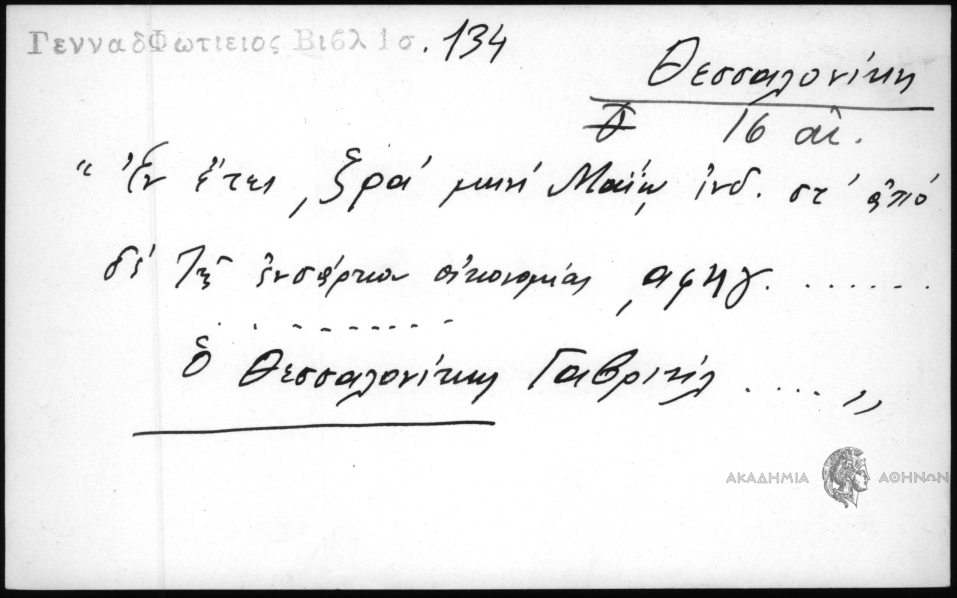 Γενναδ Φωτιειος Βιβλ 1 σ. 134
Θεσσαλονίκη
16 αἰ.
“ Ἐν ἔτει ͵ξρα´ μηνὶ Μαΐῳ ἰνδ. στ´ ἀπὸ
δὲ τῆς ἐνσάρκου οἰκονομίας ͵αφηγ. . . . . . .
. . - - - - - - -
ὁ Θεσσαλονίκης Γαβριήλ . . . . ,,
ΑΚΑΔΗΜΙΑ ΑΘΗΝΩΝ